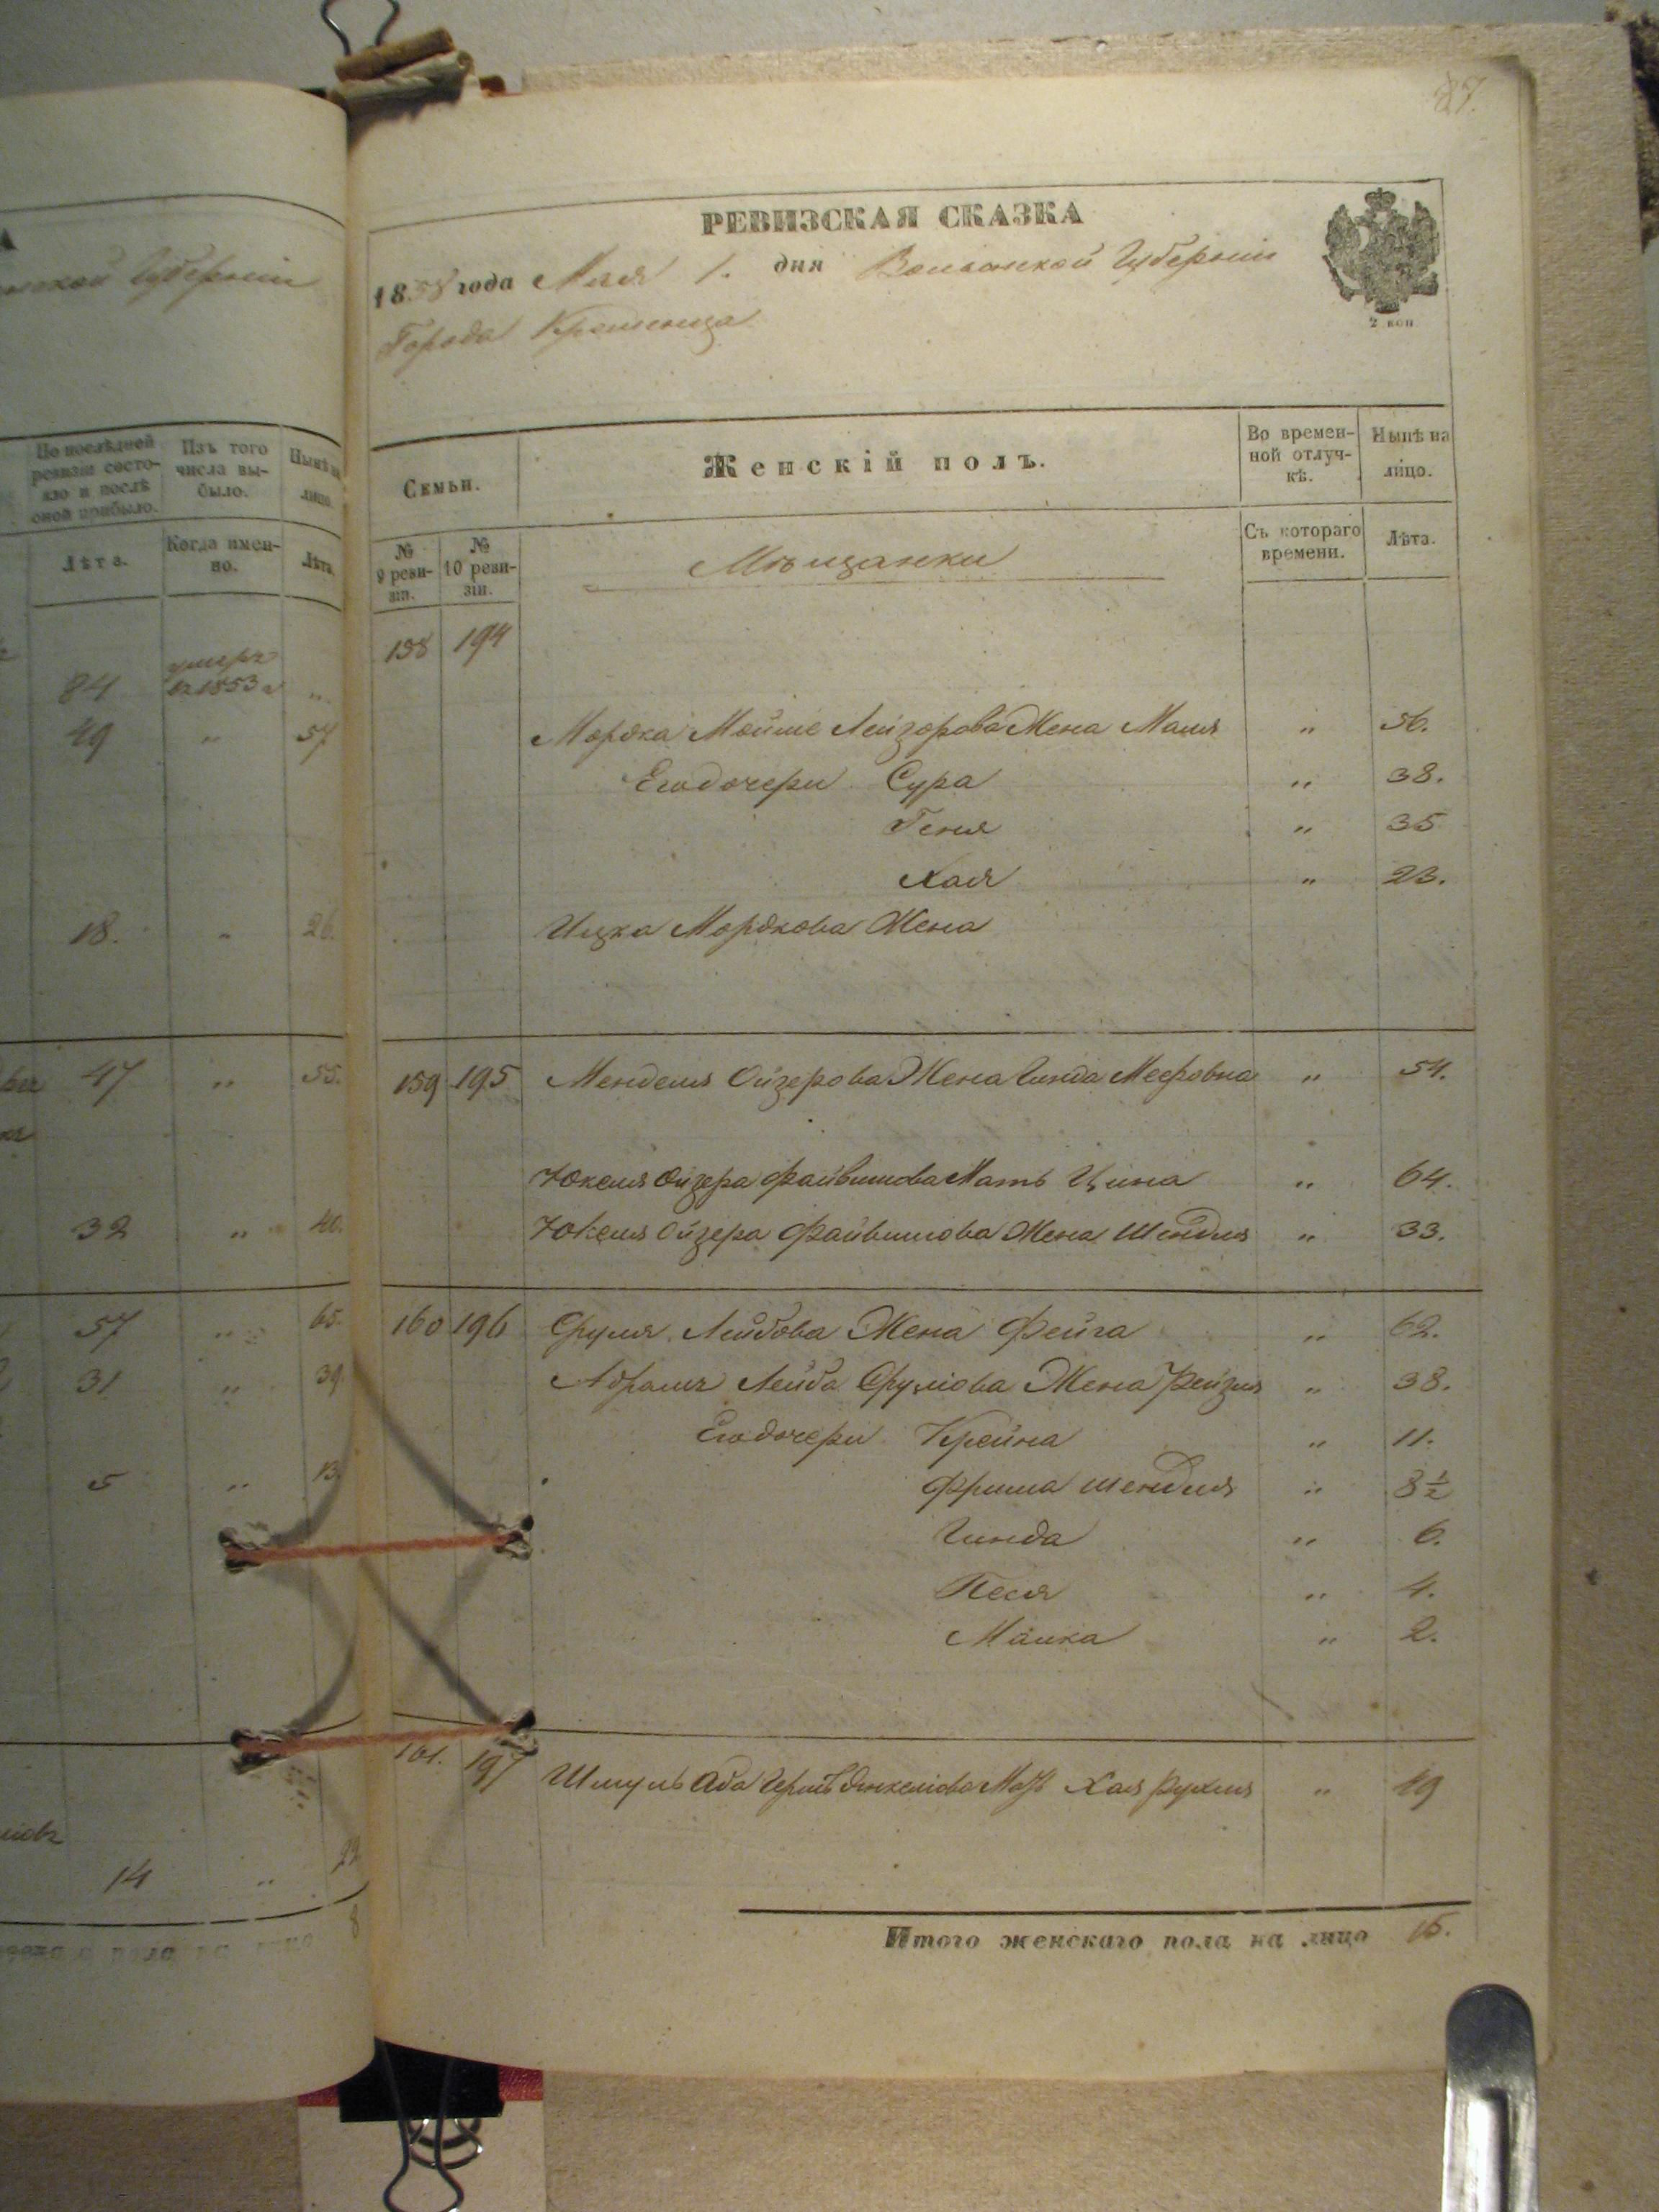 А
Губерніи
По послѣдней ревизіи состояло и послѣ оной прибыло.
Изъ того числа выбыло.
Нынѣ на лицо.
Лѣта.
Когда именно.
Лѣта.
84 умеръ въ 1853 г „
49 „ 57
18. „ 26.
47 „ 55.
32 „ 40.
57 „ 65.
31 „ 39
5 „ 13.
14 „ 22
8
27.
РЕВИЗСКАЯ СКАЗКА
1858 года Мая 1. дня Волынской Губерніи
Города Кременца
2 коп
Семьи.
Женскій полъ.
Во временной отлучкѣ.
Нынѣ на лицо.
№ 9 ревизіи.
№ 10 ревизіи.
Мѣщанки
Съ котораго времени.
Лѣта.
158 194
Мордка Мойше Лейзорова Жена Маля „ 56.
Его дочери Сура „ 38.
Геня „ 35
Хая „ 23.
Ицка Мордкова Жена
159 195 Менделя Ойзерова Жена Гинда Меерова „ 54.
Юкеля Ойзера Файвишова Мать Цина „ 64.
Юкеля Ойзера Файвишова Жена Шендля „ 33.
160 196 Сруля Лейбова Жена Фейга „ 62.
Абрамъ Лейба Срулiова Жена Рейзля „ 38.
Его дочери Крейна „ 11.
Фрима Шендля „ 8½
Гинда „ 6.
Песя „ 4.
Малка „ 2.
161. 197 Шмуль Аба Герш Янкелiова Мать Хая Рухля „ 49
Итого женскаго пола на лицо 15.